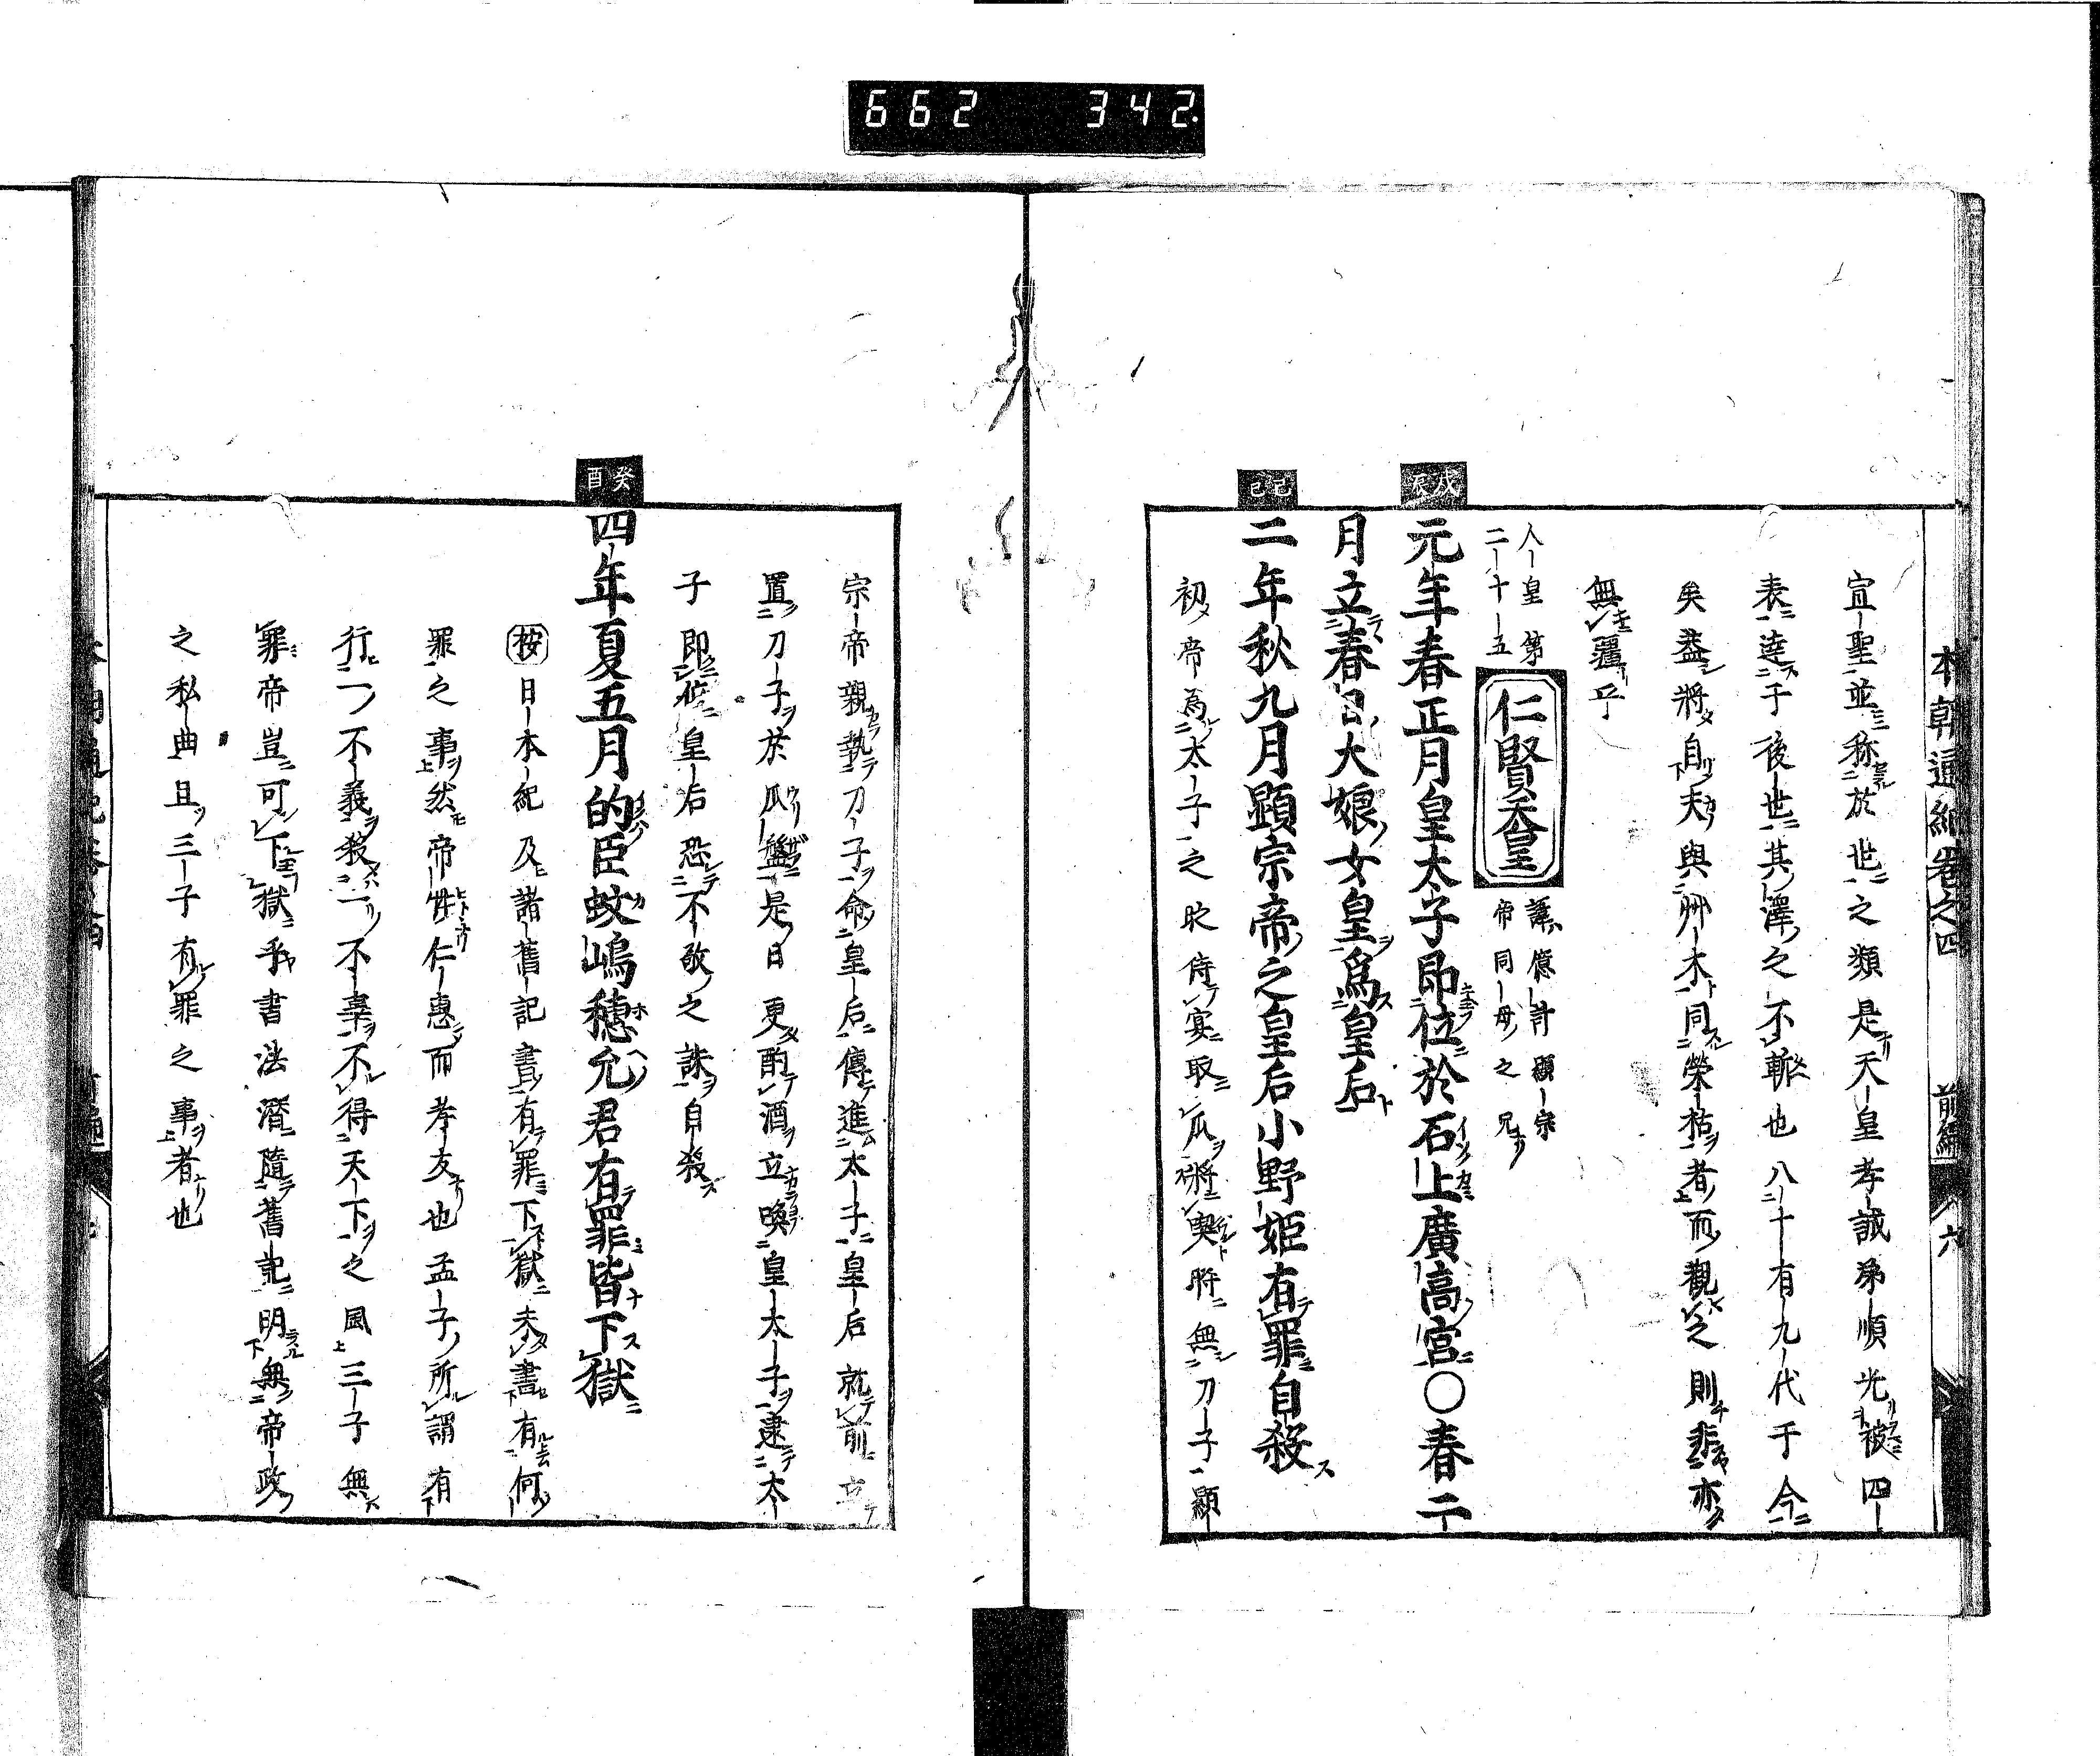 662 342.
本朝通紀卷之四 前編 六
宜聖並称於世之類是天皇孝誠弟順光被四
表達于後世其澤之不斬也八十有九代于今
矣益將自夫與艸木同榮枯者而觀之則悲亦
無疆乎
人皇第
二十五
仁賢天皇
諱億計顯宗
帝同母之兄
戊辰
元年春正月皇太子即位於石上廣高宮〇春二
月立春日大娘女皇爲皇后
己巳
二年秋九月顕宗帝之皇后小野姫有罪自殺
初帝為太子之時侍宴取瓜將喫將無刀子顯
宗帝親執刀子命皇后傳進太子皇后就前立
置刀子於瓜盤是日更酌酒立喚皇太子逮太
子即位皇后恐不敬之誅自殺
癸酉
四年夏五月的臣蚊嶋穗允君有罪皆下獄
按日本紀及諸舊記書有罪下獄未書有何
罪之事然帝性仁惠而孝友也孟子所謂有
行一不義殺一不辜不得天下之風三子無
罪帝豈可下獄乎書法潛隨舊記明無帝政
之私曲且三子有罪之事者也